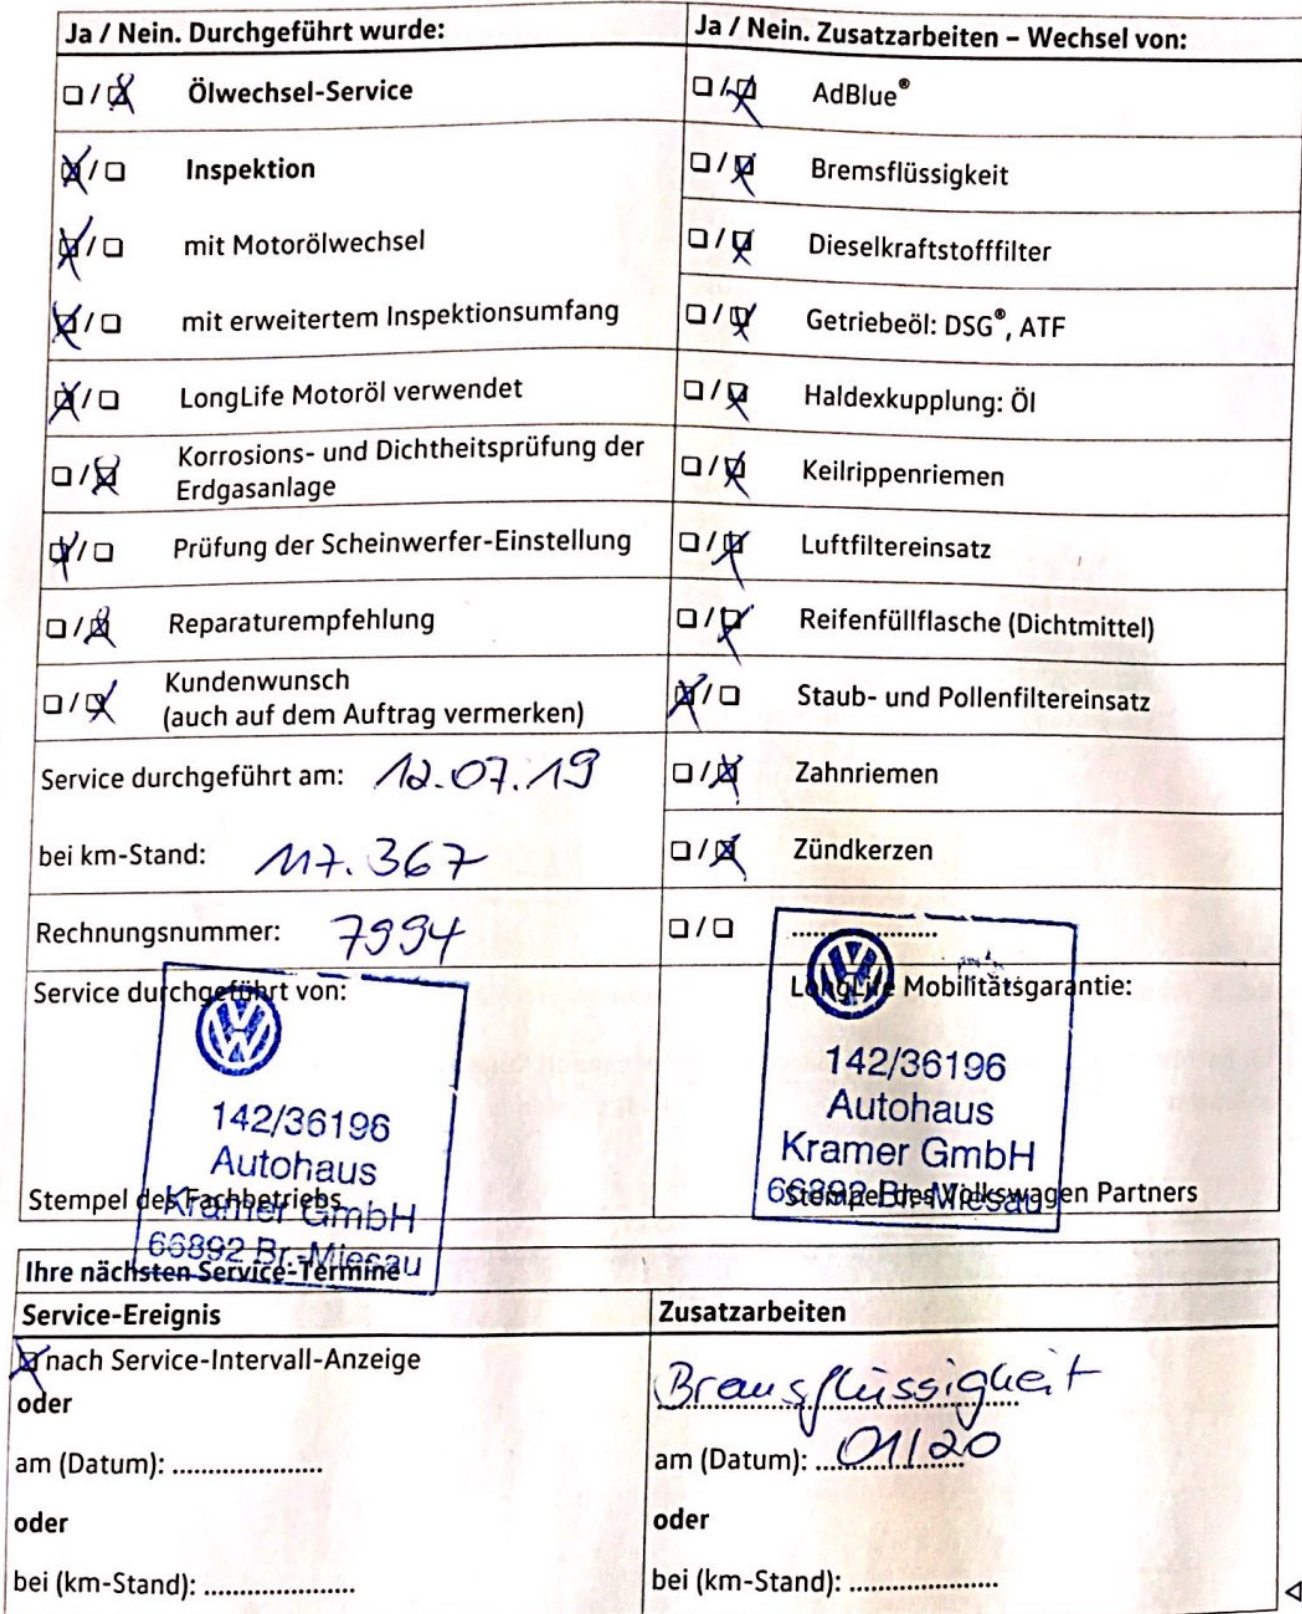 Ja / Nein. Durchgeführt wurde:
☐ / ☒ Ölwechsel-Service
☒ / ☐ Inspektion
☒ / ☐ mit Motorölwechsel
☒ / ☐ mit erweitertem Inspektionsumfang
☒ / ☐ LongLife Motoröl verwendet
☐ / ☒ Korrosions- und Dichtheitsprüfung der
Erdgasanlage
☒ / ☐ Prüfung der Scheinwerfer-Einstellung
☐ / ☒ Reparaturempfehlung
☐ / ☒ Kundenwunsch
(auch auf dem Auftrag vermerken)
Service durchgeführt am: 12.07.19
bei km-Stand: 117.367
Rechnungsnummer: 7994
Service durchgeführt von:
142/36196
Autohaus
Kramer GmbH
66892 Br.-Miesau
Stempel des Fachbetriebs
Ja / Nein. Zusatzarbeiten – Wechsel von:
☐ / ☒ AdBlue®
☐ / ☒ Bremsflüssigkeit
☐ / ☒ Dieselkraftstofffilter
☐ / ☒ Getriebeöl: DSG®, ATF
☐ / ☒ Haldexkupplung: Öl
☐ / ☒ Keilrippenriemen
☐ / ☒ Luftfiltereinsatz
☐ / ☒ Reifenfüllflasche (Dichtmittel)
☒ / ☐ Staub- und Pollenfiltereinsatz
☐ / ☒ Zahnriemen
☐ / ☒ Zündkerzen
☐ / ☐ ....................
LongLife Mobilitätsgarantie:
142/36196
Autohaus
Kramer GmbH
66892 Br.-Miesau
Stempel des Volkswagen Partners
Ihre nächsten Service-Termine
Service-Ereignis
☒ nach Service-Intervall-Anzeige
oder
am (Datum): ....................
oder
bei (km-Stand): ....................
Zusatzarbeiten
Bremsflüssigkeit
am (Datum): 01/20
oder
bei (km-Stand): ....................